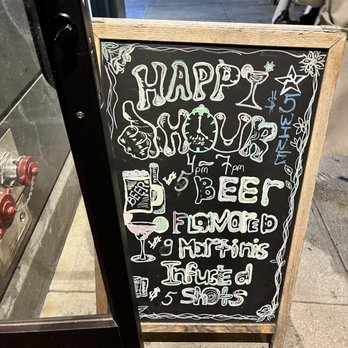 HAPPY
HOUR
$5 WINE
4pm - 7pm
BEER
$5 BEER
FLAVORED
$9 Martinis
Infused
$5 Shots